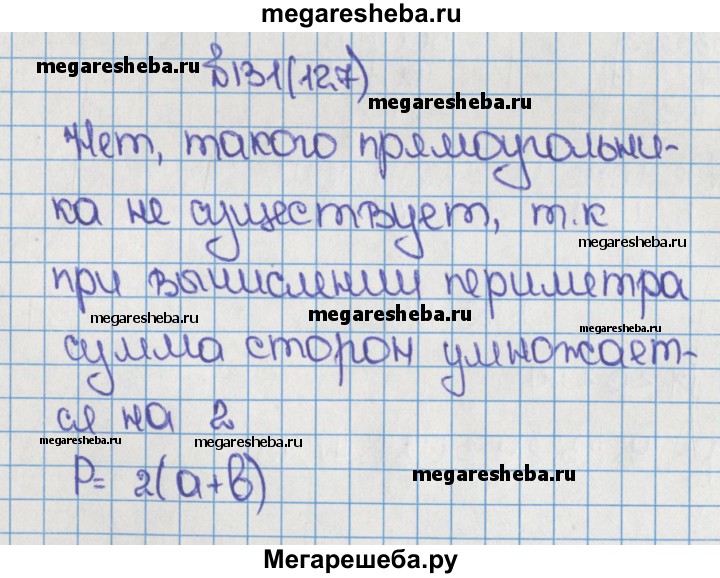 megaresheba.ru
megaresheba.ru
№131(127)
megaresheba.ru
Нет, такого прямоугольни-
ка не существует, т.к
megaresheba.ru
при вычислении периметра
megaresheba.ru
megaresheba.ru
megaresheba.ru
сумма сторон умножает-
ся на 2
megaresheba.ru
megaresheba.ru
P= 2(a+b)
megaresheba.ru
Мегарешеба.ру